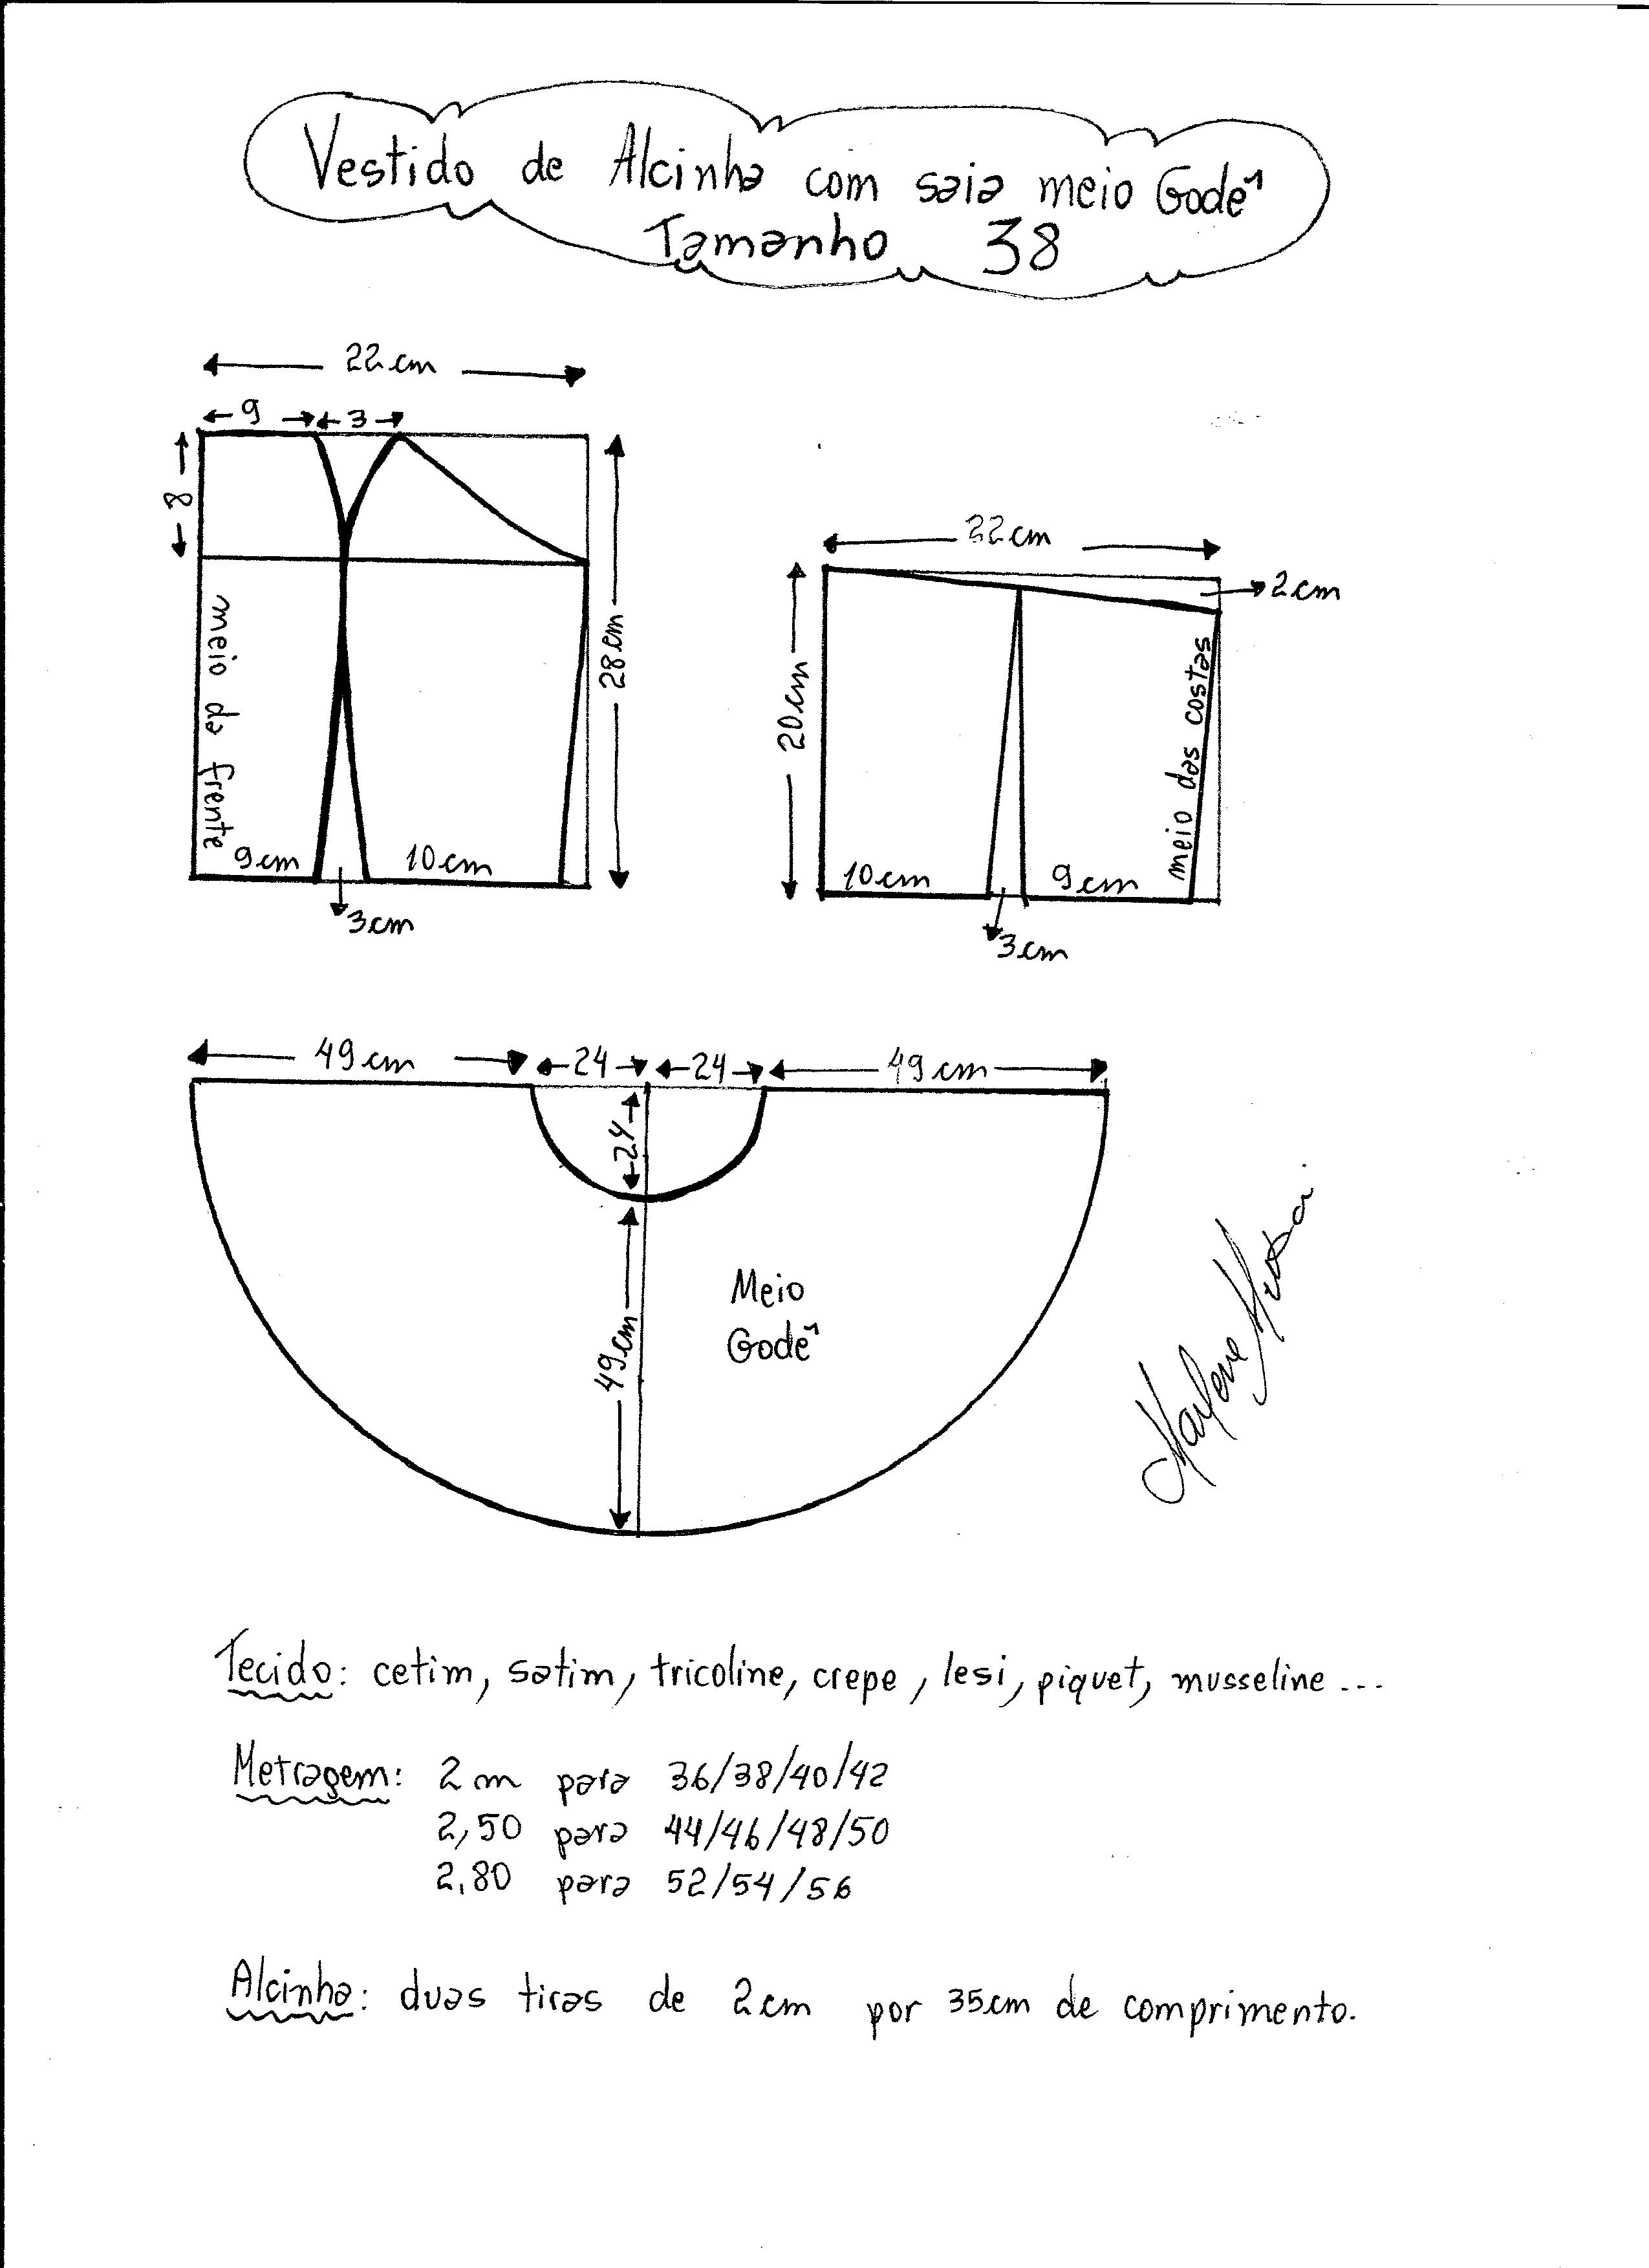 Vestido de Alcinha com saia meio Godê
Tamanho 38
22cm
9
3
8
meio da frente
28cm
9cm
10cm
3cm
22cm
2cm
20cm
meio das costas
10cm
9cm
3cm
49cm
24
24
49cm
24
49cm
Meio
Godê
Marlene
Tecido: cetim, satim, tricoline, crepe, lesi, piquet, musseline...
Metragem: 2m para 36/38/40/42
2,50 para 44/46/48/50
2,80 para 52/54/56
Alcinha: duas tiras de 2cm por 35cm de comprimento.